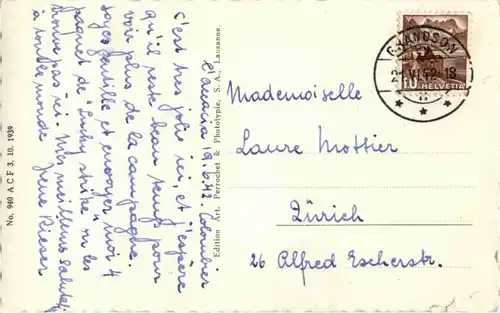 L'Acacia 19.6.42. Colombier
C'est très joli ici, et j'espère
qu'il reste beau temps pour
voir plus de la campagne.
Soyez gentille et envoyer moi 4
paquet de "Lucky strike" on les
trouve pas ici. Mes meilleurs salutat.
à toute le monde
Irene Rieser
No. 940 A C F 3. 10. 1939
Edition Art. Perrochet & Phototypie, S. A., Lausanne.
GRANDSON
VI 42-18
10 HELVETIA
Mademoiselle
Laure Mottier
Zürich
26 Alfred Escherstr.